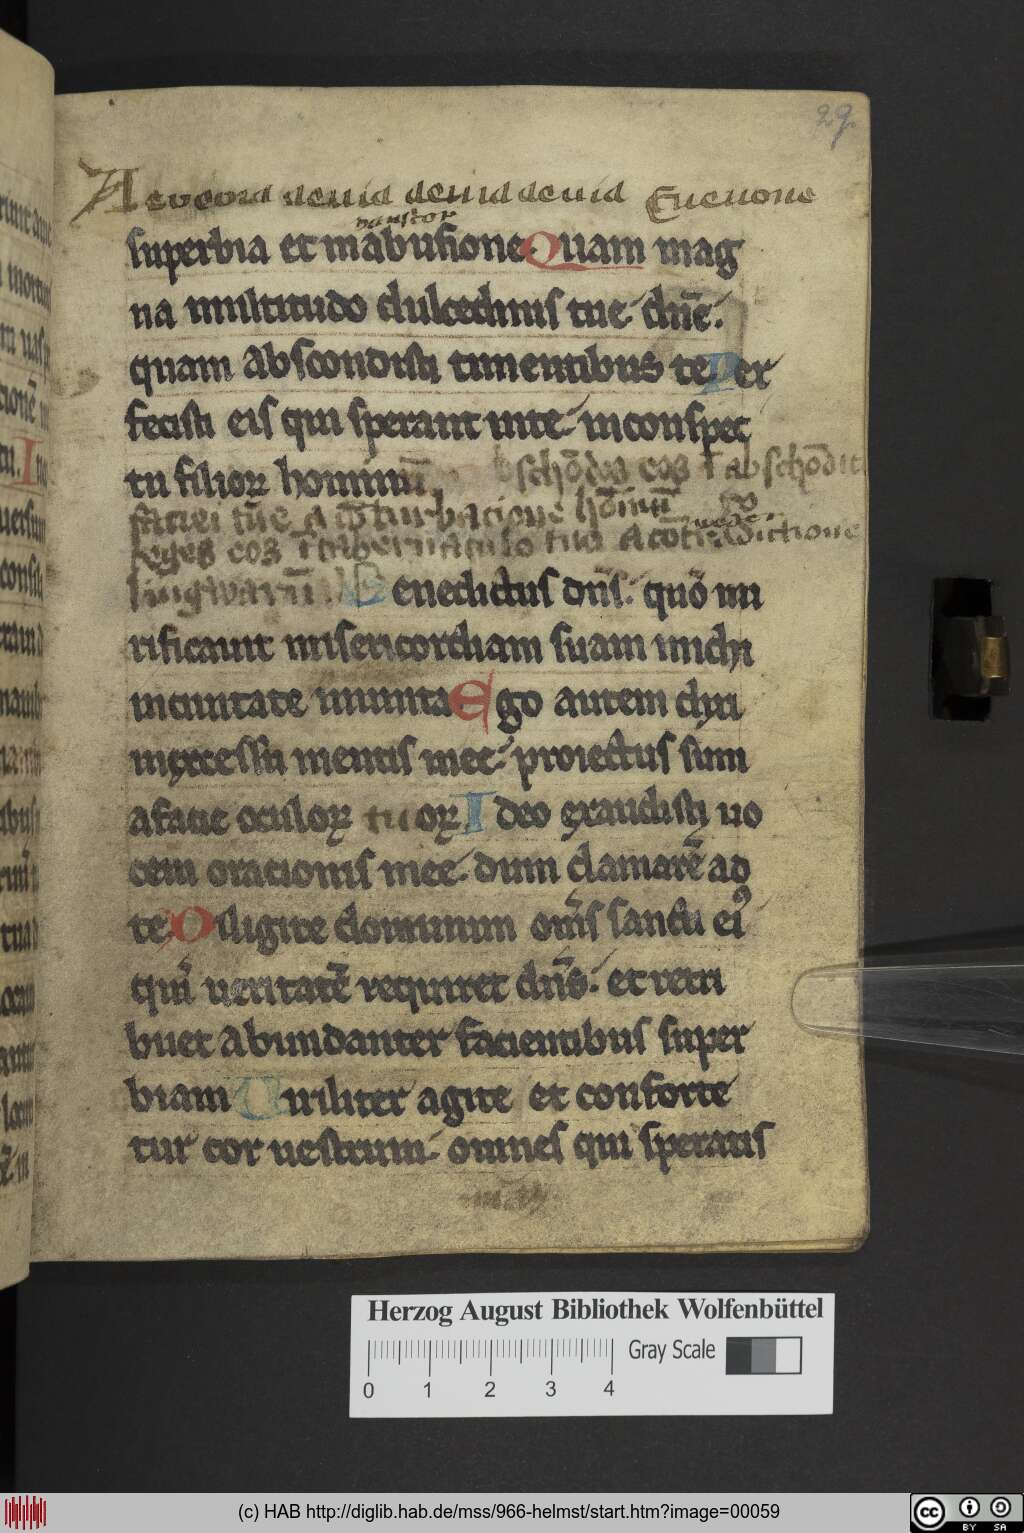 29
superbia et in abusione Quam mag
na multitudo dulcedinis tue dn̄e.
quam abscondisti timentibus te Per
fecisti eis qui sperant inte inconspec
tu filioꝝ hominū
abschōdes eos ī abschōdito
faciei tue a cōturbacione hōinū
teges eos ī tabernaculo tuo a cōtradictione
lingwarū Benedictus dn̄s. quō mi
rificauit misericordiam suam michi
inciuitate munita Ego autem dixi
inexcessu mentis mee proiectus sum
afacie oculoꝝ tuoꝝ Ideo exaudisti uo
cem oracionis mee dum clamarē ad
te Diligite dominum om̄s sancti eiꝰ
qm̄ ueritatē requiret dn̄s. et retri
buet abundanter facientibus super
biam Uiriliter agite et conforte
tur cor uestrum omnes qui speratis
Herzog August Bibliothek Wolfenbüttel
Gray Scale
0 1 2 3 4
(c) HAB http://diglib.hab.de/mss/966-helmst/start.htm?image=00059
cc BY SA